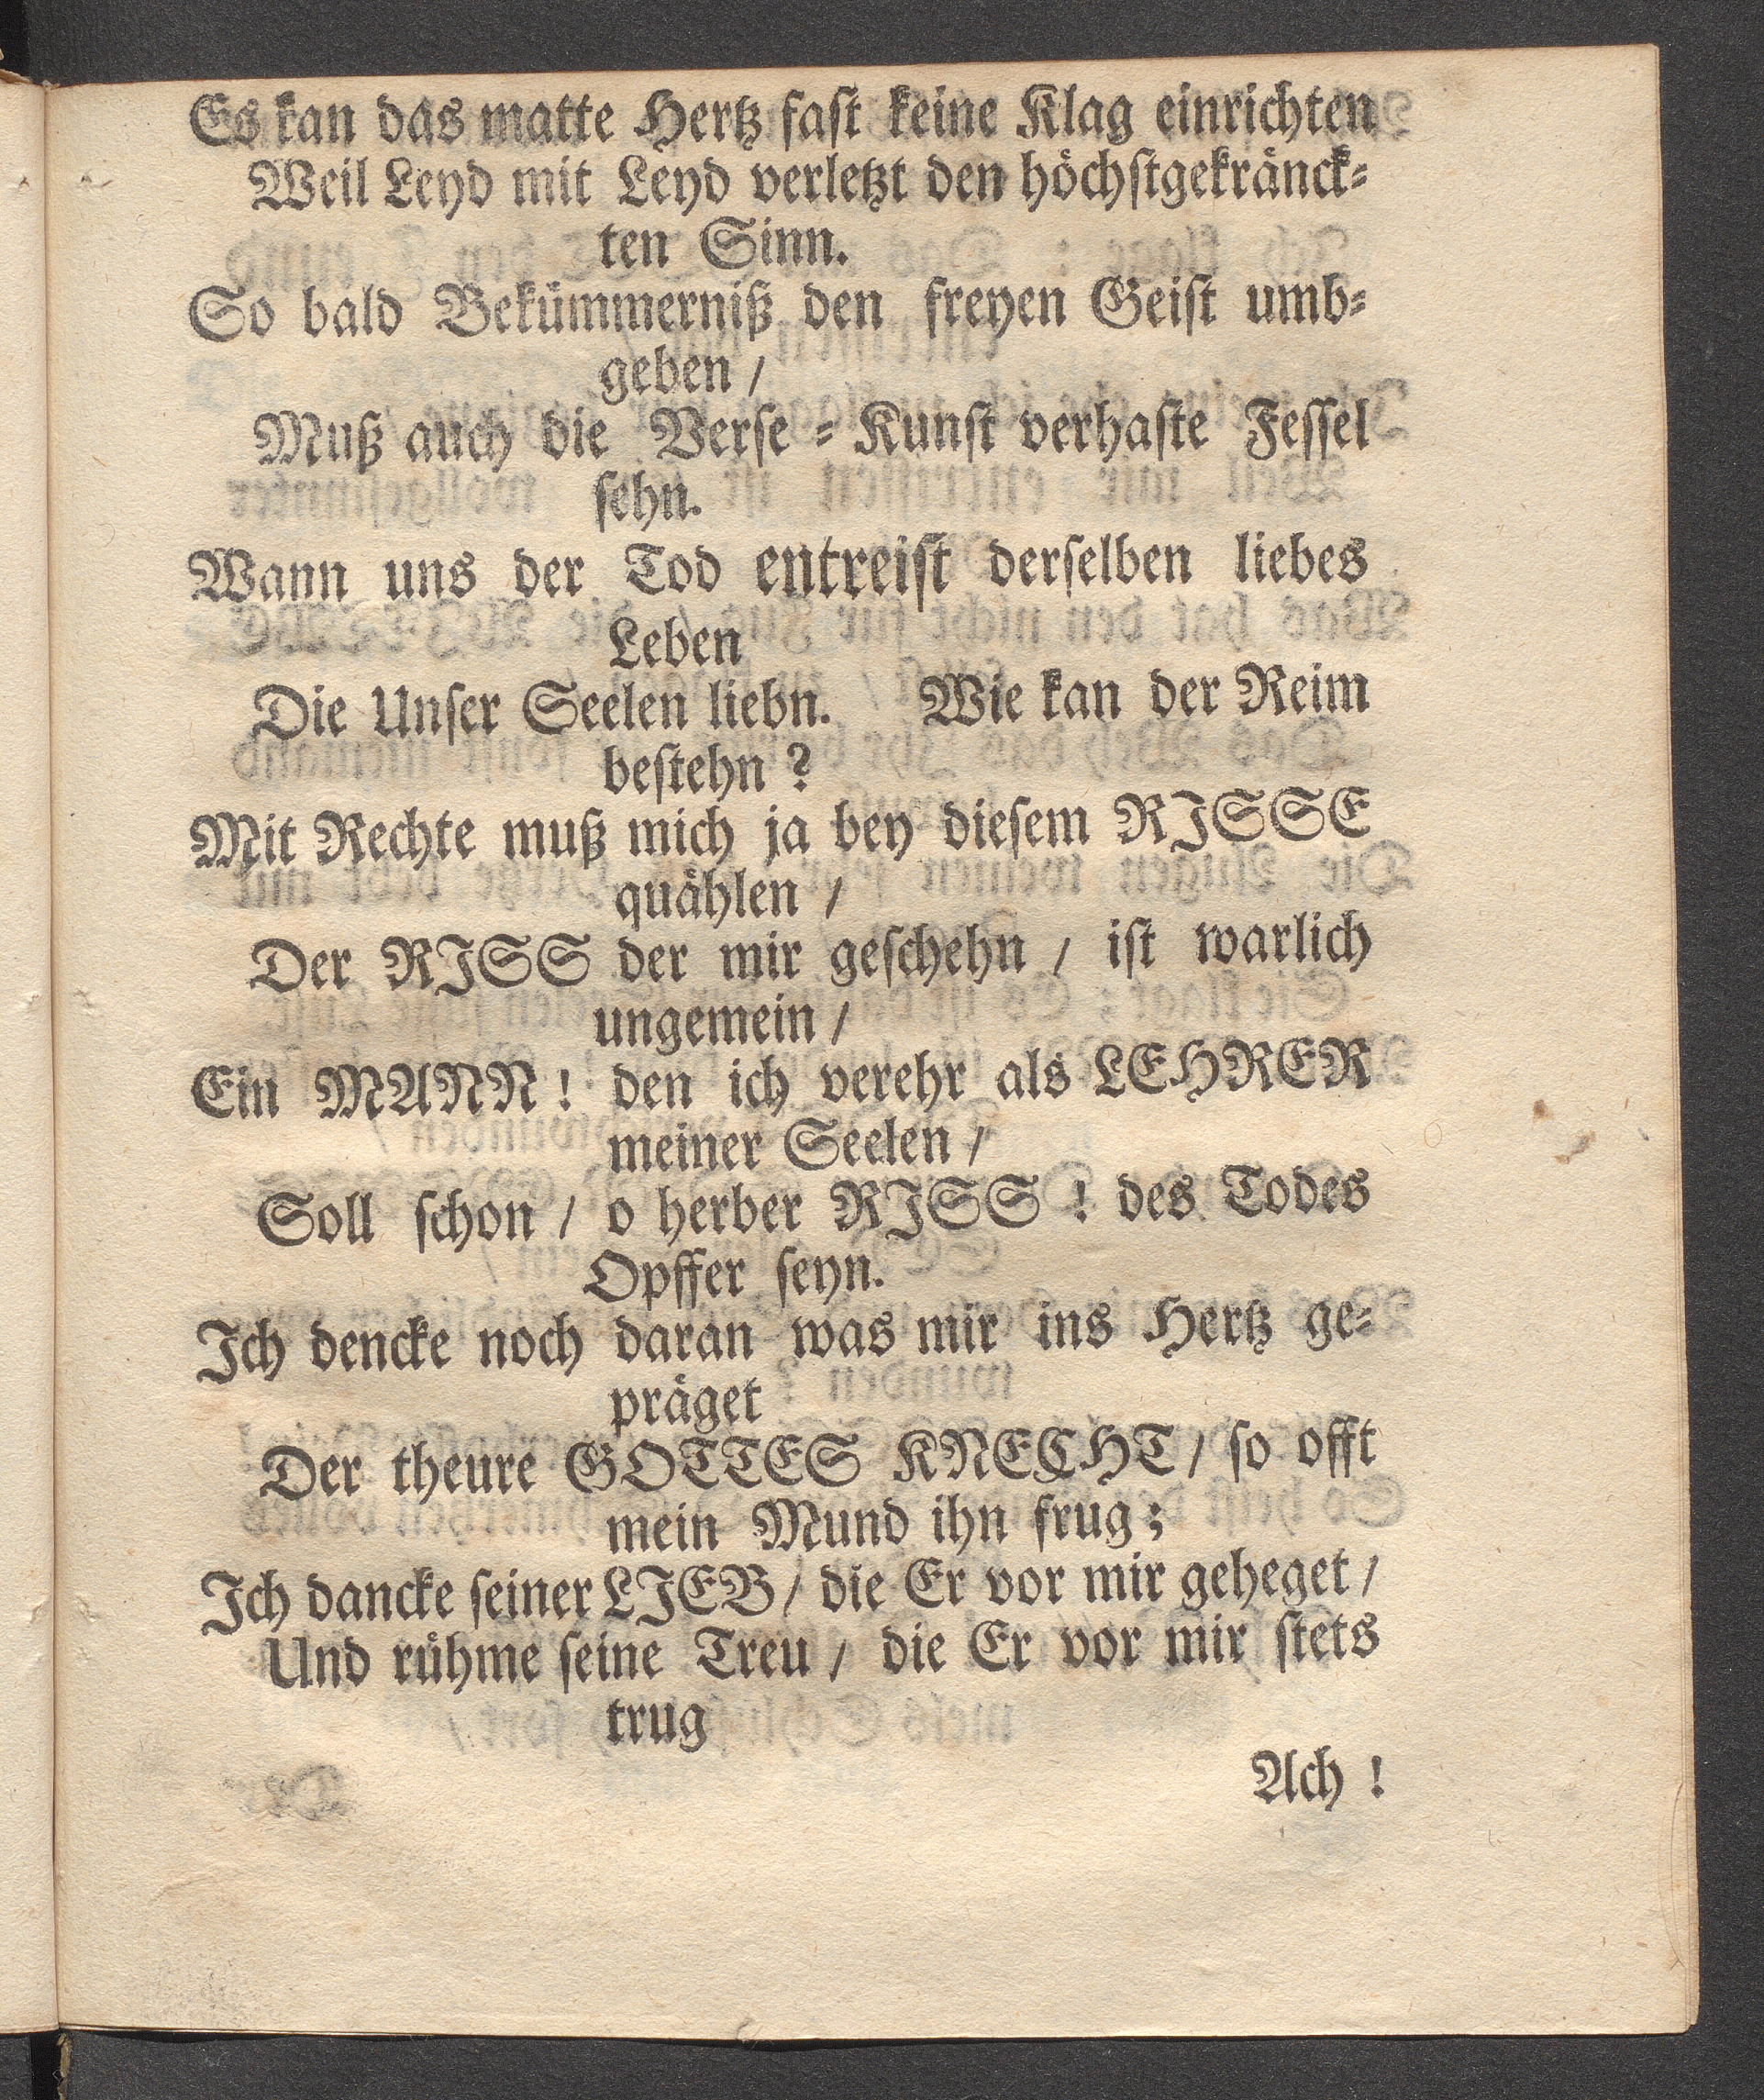 Es kan das matte Hertz fast keine Klag einrichten
Weil Leyd mit Leyd verletzt den höchstgekränck-
ten Sinn.
So bald Bekümmerniß den freyen Geist umb-
geben /
Muß auch die Verse-Kunst verhaste Fessel
sehn.
Wann uns der Tod entreist derselben liebes
Leben
Die Unser Seelen liebn. Wie kan der Reim
bestehn?
Mit Rechte muß mich ja bey diesem RISSE
quählen /
Der RISS der mir geschehn / ist warlich
ungemein /
Ein MANN! den ich verehr als LEHRER
meiner Seelen /
Soll schon / o herber RISS! des Todes
Opffer seyn.
Ich dencke noch daran was mir ins Hertz ge-
präget
Der theure GOTTES KNECHT / so offt
mein Mund ihn frug;
Ich dancke seiner LIEB / die Er vor mir geheget /
Und rühme seine Treu / die Er vor mir stets
trug
Ach!